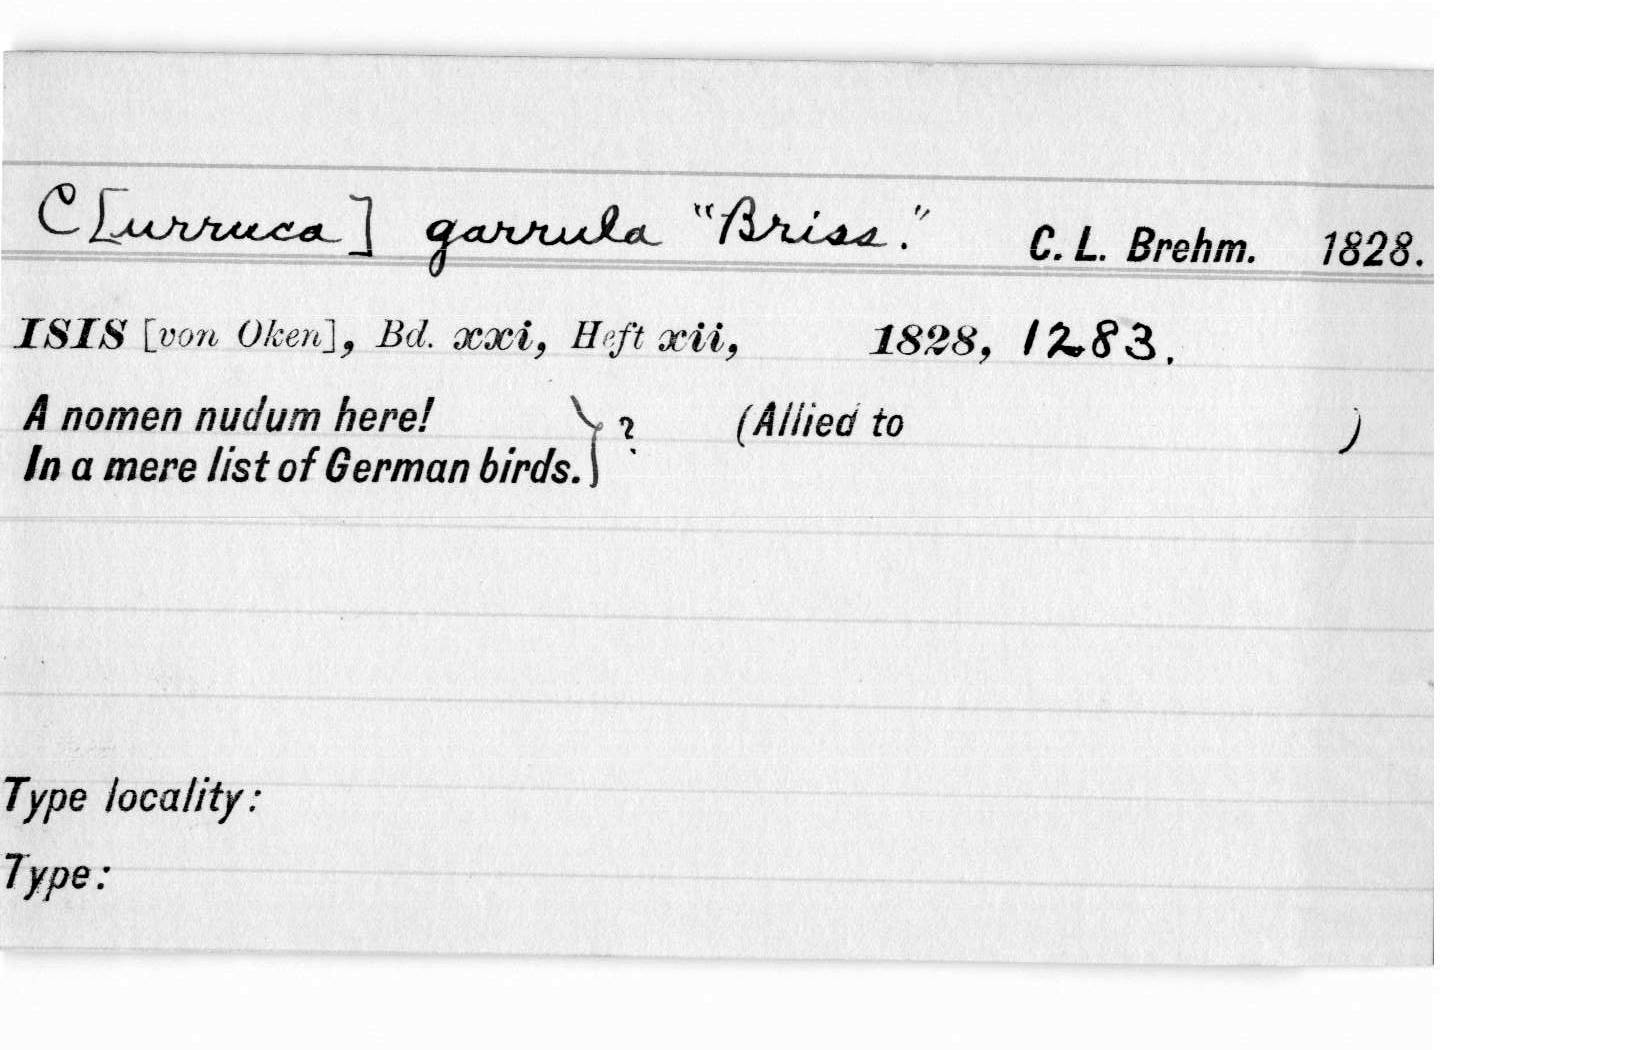 C[urruca] garrula "Briss." C. L. Brehm. 1828.
ISIS [von Oken], Bd. xxi, Heft xii, 1828, 1283.
A nomen nudum here! } ? (Allied to )
In a mere list of German birds.
Type locality:
Type: